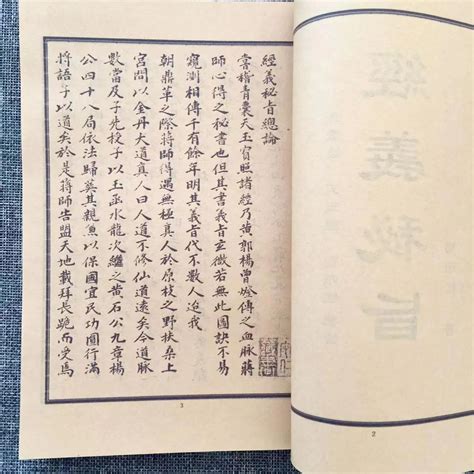 經義秘旨
2
經義秘旨總論
嘗稽青囊天玉寶照諸經乃黃郭楊曾燈傳之血脈蔣
師心得之秘書也但其書義旨玄微若無此圖訣不易
窺測相傳千有餘年明其義旨代不數人迨我
朝鼎革之際蔣師得遇無極真人於原枝之野扶桑上
宮問以金丹大道真人曰人道不修仙道遠矣今道脈
數當及子先授子以玉函水龍次繼之黃石公九章楊
公四十八局依法歸葬其親兼以保國宜民功圓行滿
將語子以道矣於是蔣師告盟天地載拜長跪而受焉
3